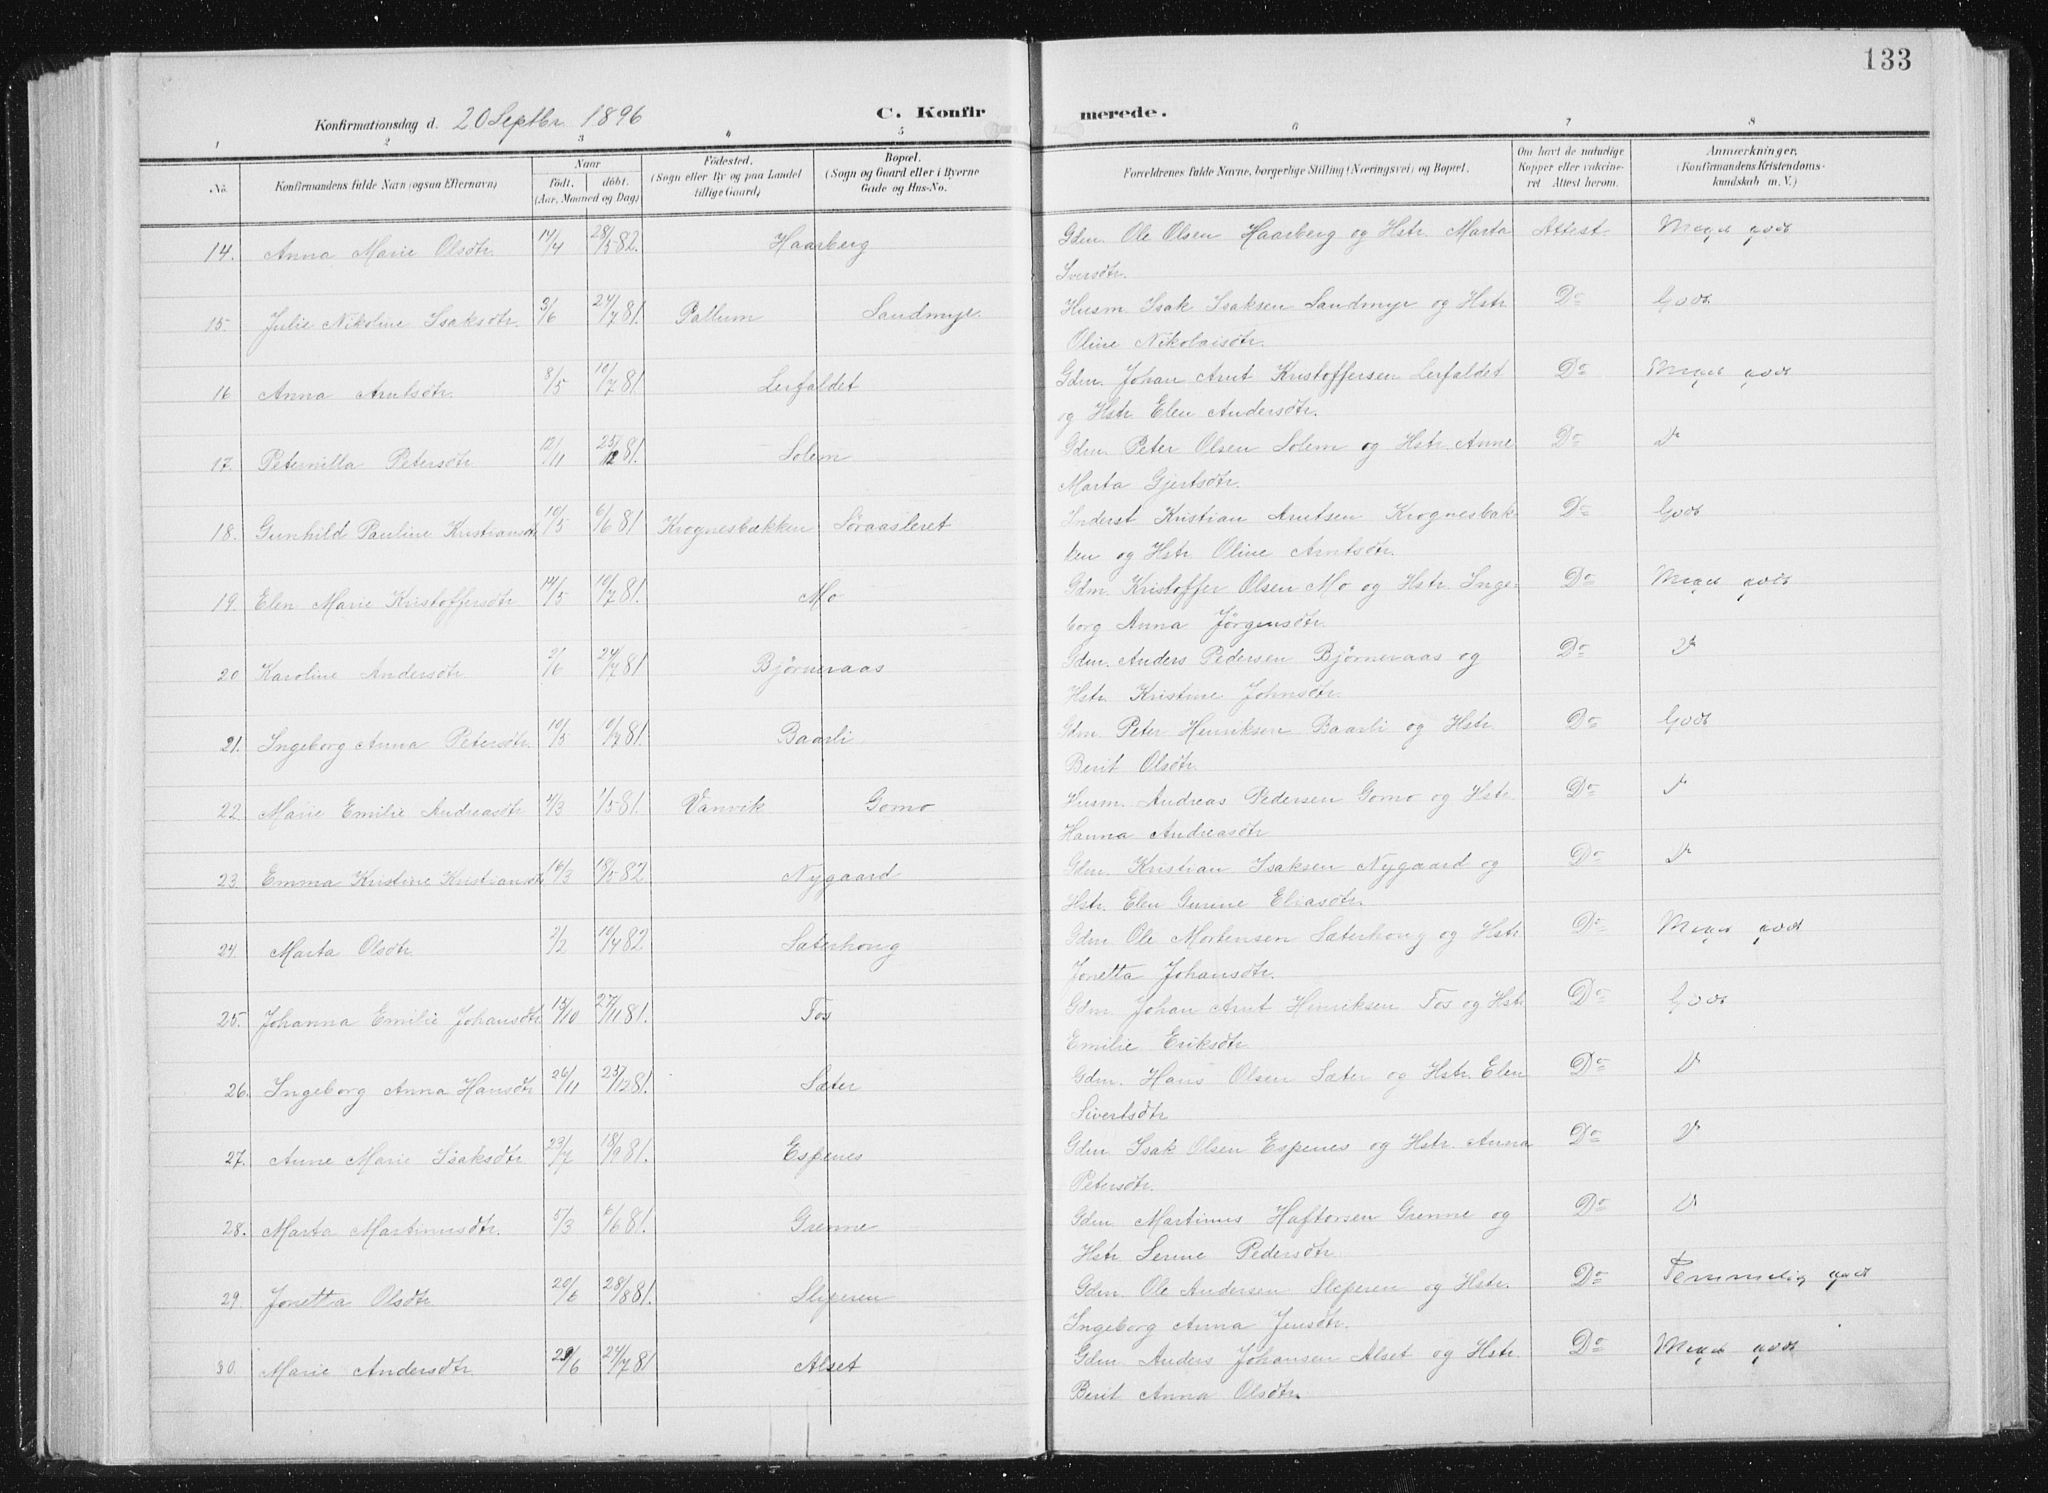 133
Konfirmationsdag d. 20 Septbr. 1896 C. Konfirmerede.
1 2 3 4 5 6 7 8
No. Konfirmandens fulde Navn (ogsaa Efternavn) Naar født. døbt. (Aar, Maaned og Dag) Fødested. (Sogn eller By og paa Landet tillige Gaard) Bopæl. (Sogn og Gaard eller i Byerne Gade og Hus-No. Forældrenes fulde Navne, borgerlige Stilling (Næringsvei) og Bopæl. Om havt de naturlige Kopper eller vakcineret. Attest herom. Anmærkninger. (Konfirmandens Kristendomskundskab m. V.)
14. Anna Marie Olsdtr. 14/4 28/5 82. Haarberg Gdm. Ole Olsen Haarberg og Hstr. Marta Attest Meget godt
Iversdtr.
15. Julie Nikoline Isaksdtr. 3/6 24/7 81. Pallum Sandmyr Husm. Isak Isaksen Sandmyr og Hstr Do Godt
Oline Nikolaisdtr.
16 Anna Arntsdtr. 8/5 10/7 81. Lerfaldet Gdm. Johan Arnt Kristoffersen Lerfaldet Do Meget godt
og Hstr. Elen Andersdtr.
17. Peternilla Petersdtr 12/11 25/12 81. Solem Gdm. Peter Olsen Solem og Hstr. Anne Do
Marta Gjertsdtr.
18. Gunhild Pauline Kristiansdtr 10/5 6/6 81 Krognesbakken Søraasleret Inderst Kristian Arntsen Krognesbak- Do Godt
ken og Hstr Oline Arntsdtr.
19. Elen Marie Kristoffersdtr 14/5 10/7 81. Mo Gdm. Kristoffer Olsen Mo og Hstr. Inge- Do Meget godt
borg Anna Jørgensdtr.
20 Karoline Andersdtr 2/6 24/7 81 Bjørneraas Gdm. Anders Pedersen Bjørneraas og Do
Hstr. Kristine Johnsdtr.
21. Ingeborg Anna Petersdtr. 10/5 10/7 81. Baarli Gdm. Peter Henriksen Baarli og Hstr. Do Godt
Berit Olsdtr.
22. Marie Emilie Andreasdtr 4/3 1/5 81. Vanvik Gomo Husm. Andreas Pedersen Gomo og Hstr. Do
Hanna Andreasdtr
23. Emma Kristine Kristiansdtr 16/3 18/5 82 Nygaard Gdm. Kristian Isaksen Nygaard og Do
Hstr. Elen Gurine Eliasdtr.
24. Marta Olsdtr. 2/2 10/4 82 Sæterhoug Gdm. Ole Mortensen Sæterhoug og Hstr Do Meget godt
Jonetta Johansdtr.
25. Johanna Emilie Johansdtr 15/10 27/11 81. Fos Gdm. Johan Arnt Henriksen Fos og Hstr Do Godt
Emilie Eriksdtr
26. Ingeborg Anna Hansdtr 26/11 25/12 81. Sæter Gdm. Hans Olsen Sæter og Hstr. Elen Do
Sivertsdtr
27. Anne Marie Isaksdtr 23/7 18/9 81. Espenes Gdm. Isak Olsen Espenes og Hstr. Anna Do
Petersdtr.
28. Marta Martinusdtr. 5/3 6/6 81. Grenne Gdm. Martinus Haftorsen Grenne og Do
Hstr Serine Pedersdtr
29. Jonetta Olsdtr 20/6 28/8 81. Sliperen Gdm. Ole Andersen Sliperen og Hstr. Do Temmelig godt
Ingeborg Anna Jensdtr.
30. Marie Andersdtr 29/6 24/7 81 Alset Gdm. Anders Johansen Alset og Hstr Do Meget godt
Berit Anna Olsdtr.